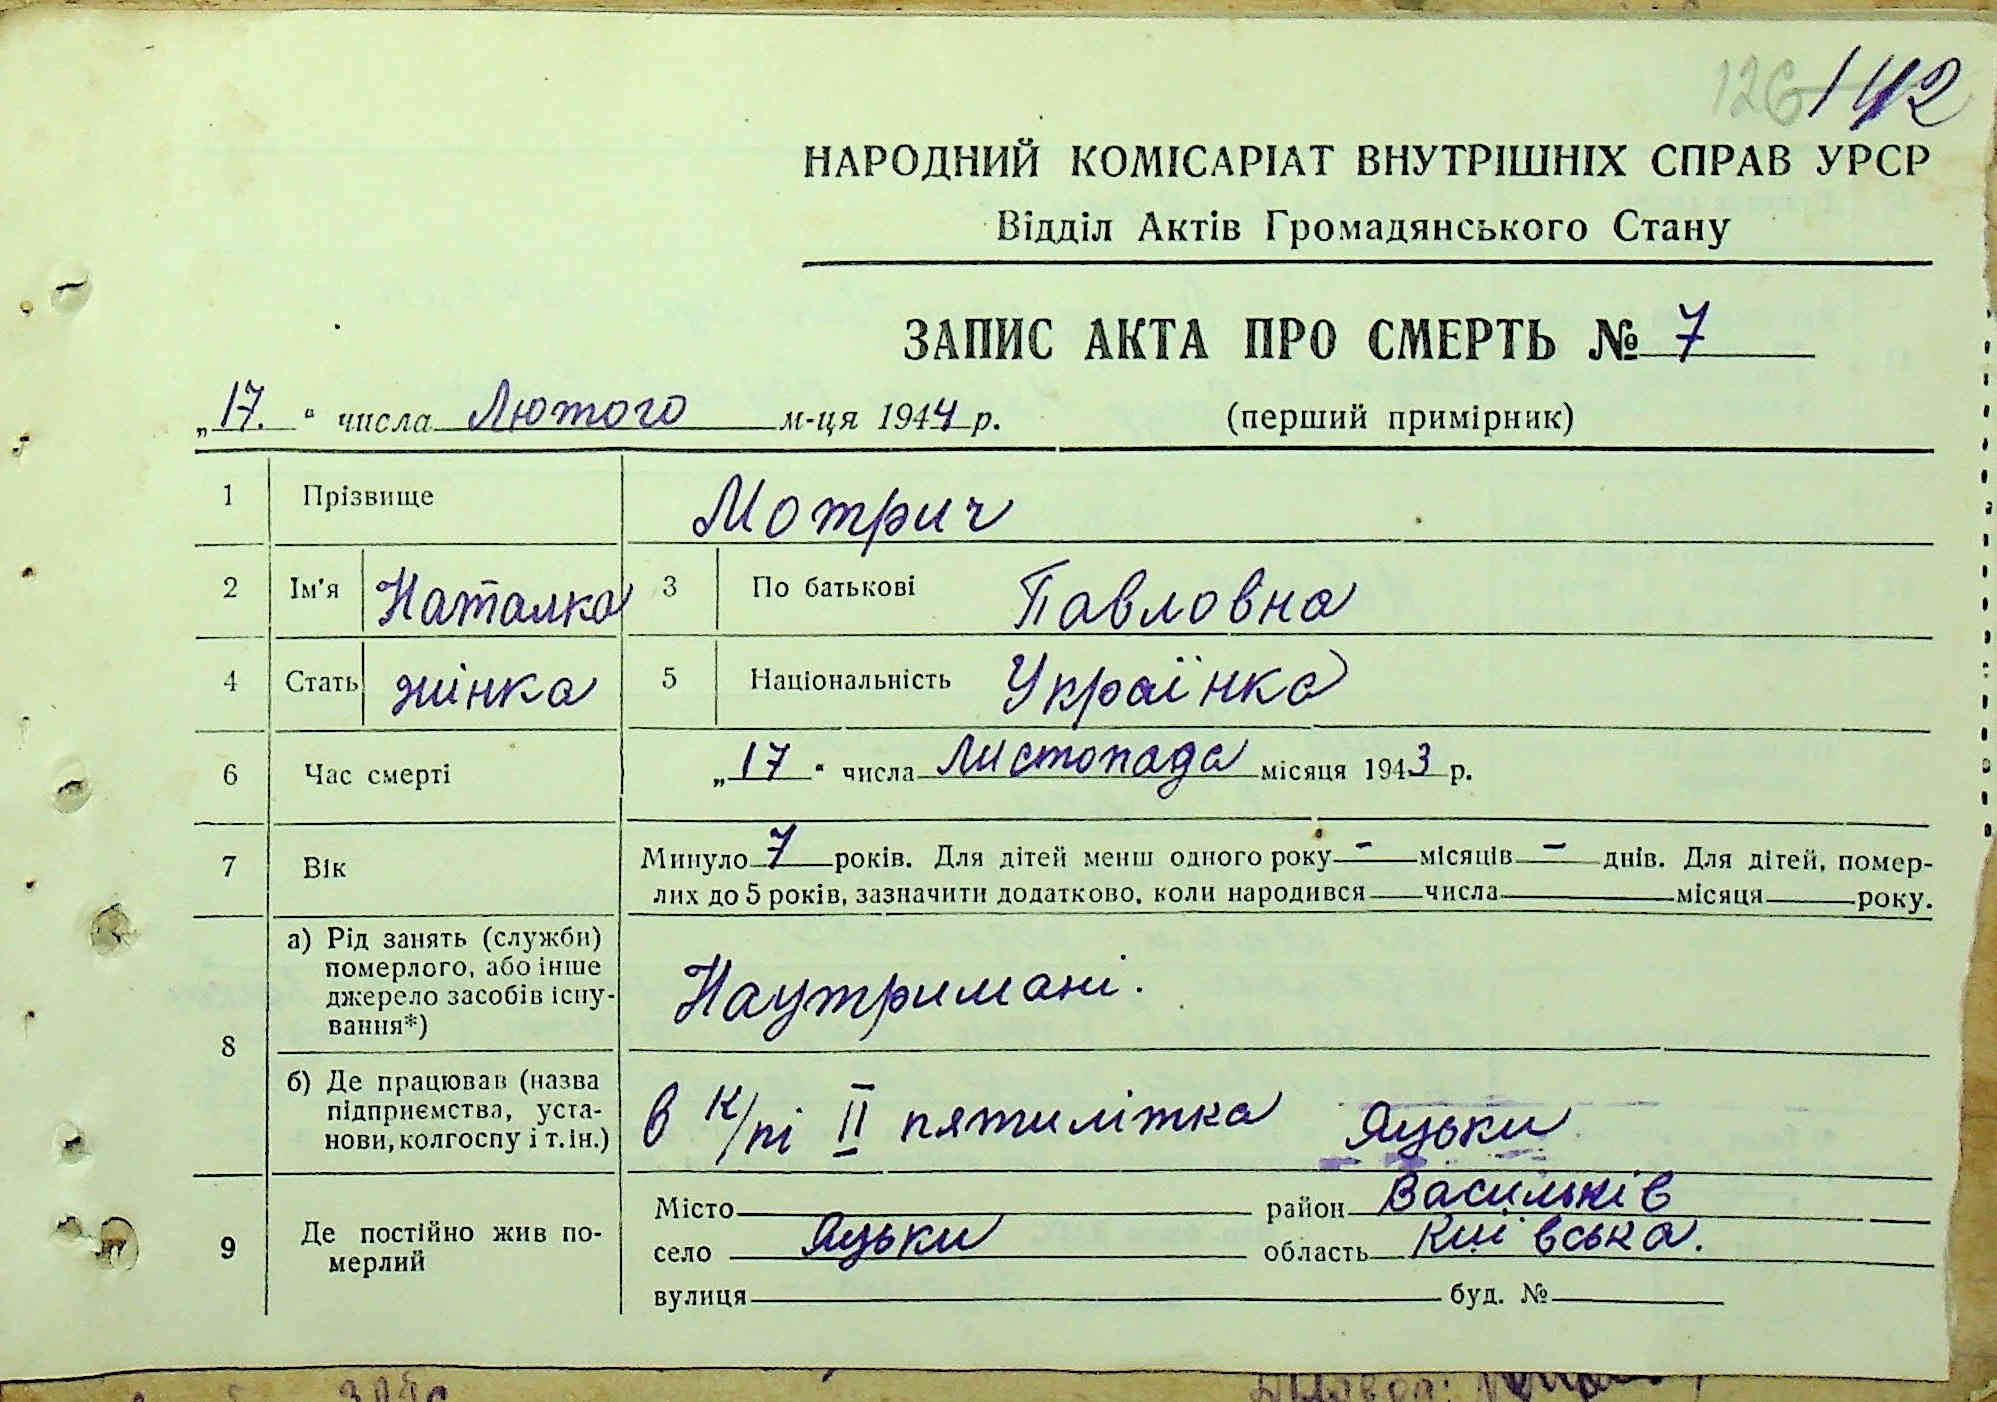 126 142
НАРОДНИЙ КОМІСАРІАТ ВНУТРІШНІХ СПРАВ УРСР
Відділ Актів Громадянського Стану
ЗАПИС АКТА ПРО СМЕРТЬ № 7
„17." числа Лютого м-ця 1944 р. (перший примірник)
1 Прізвище Мотрич
2 Ім'я Наталка 3 По батькові Павловна
4 Стать жінка 5 Національність Українка
6 Час смерті „17" числа Листопада місяця 1943 р.
7 Вік Минуло 7 років. Для дітей менш одного року - місяців - днів. Для дітей, помер-
лих до 5 років, зазначити додатково, коли народився числа місяця року.
8 а) Рід занять (служби)
померлого, або інше
джерело засобів існу-
вання*)
Наутримані.
б) Де працював (назва
підприємства, уста-
нови, колгоспу і т. ін.)
в к/пі II пятилітка Яцьки
9 Де постійно жив по-
мерлий
Місто район Васильків
село Яцьки область Київська.
вулиця буд. №